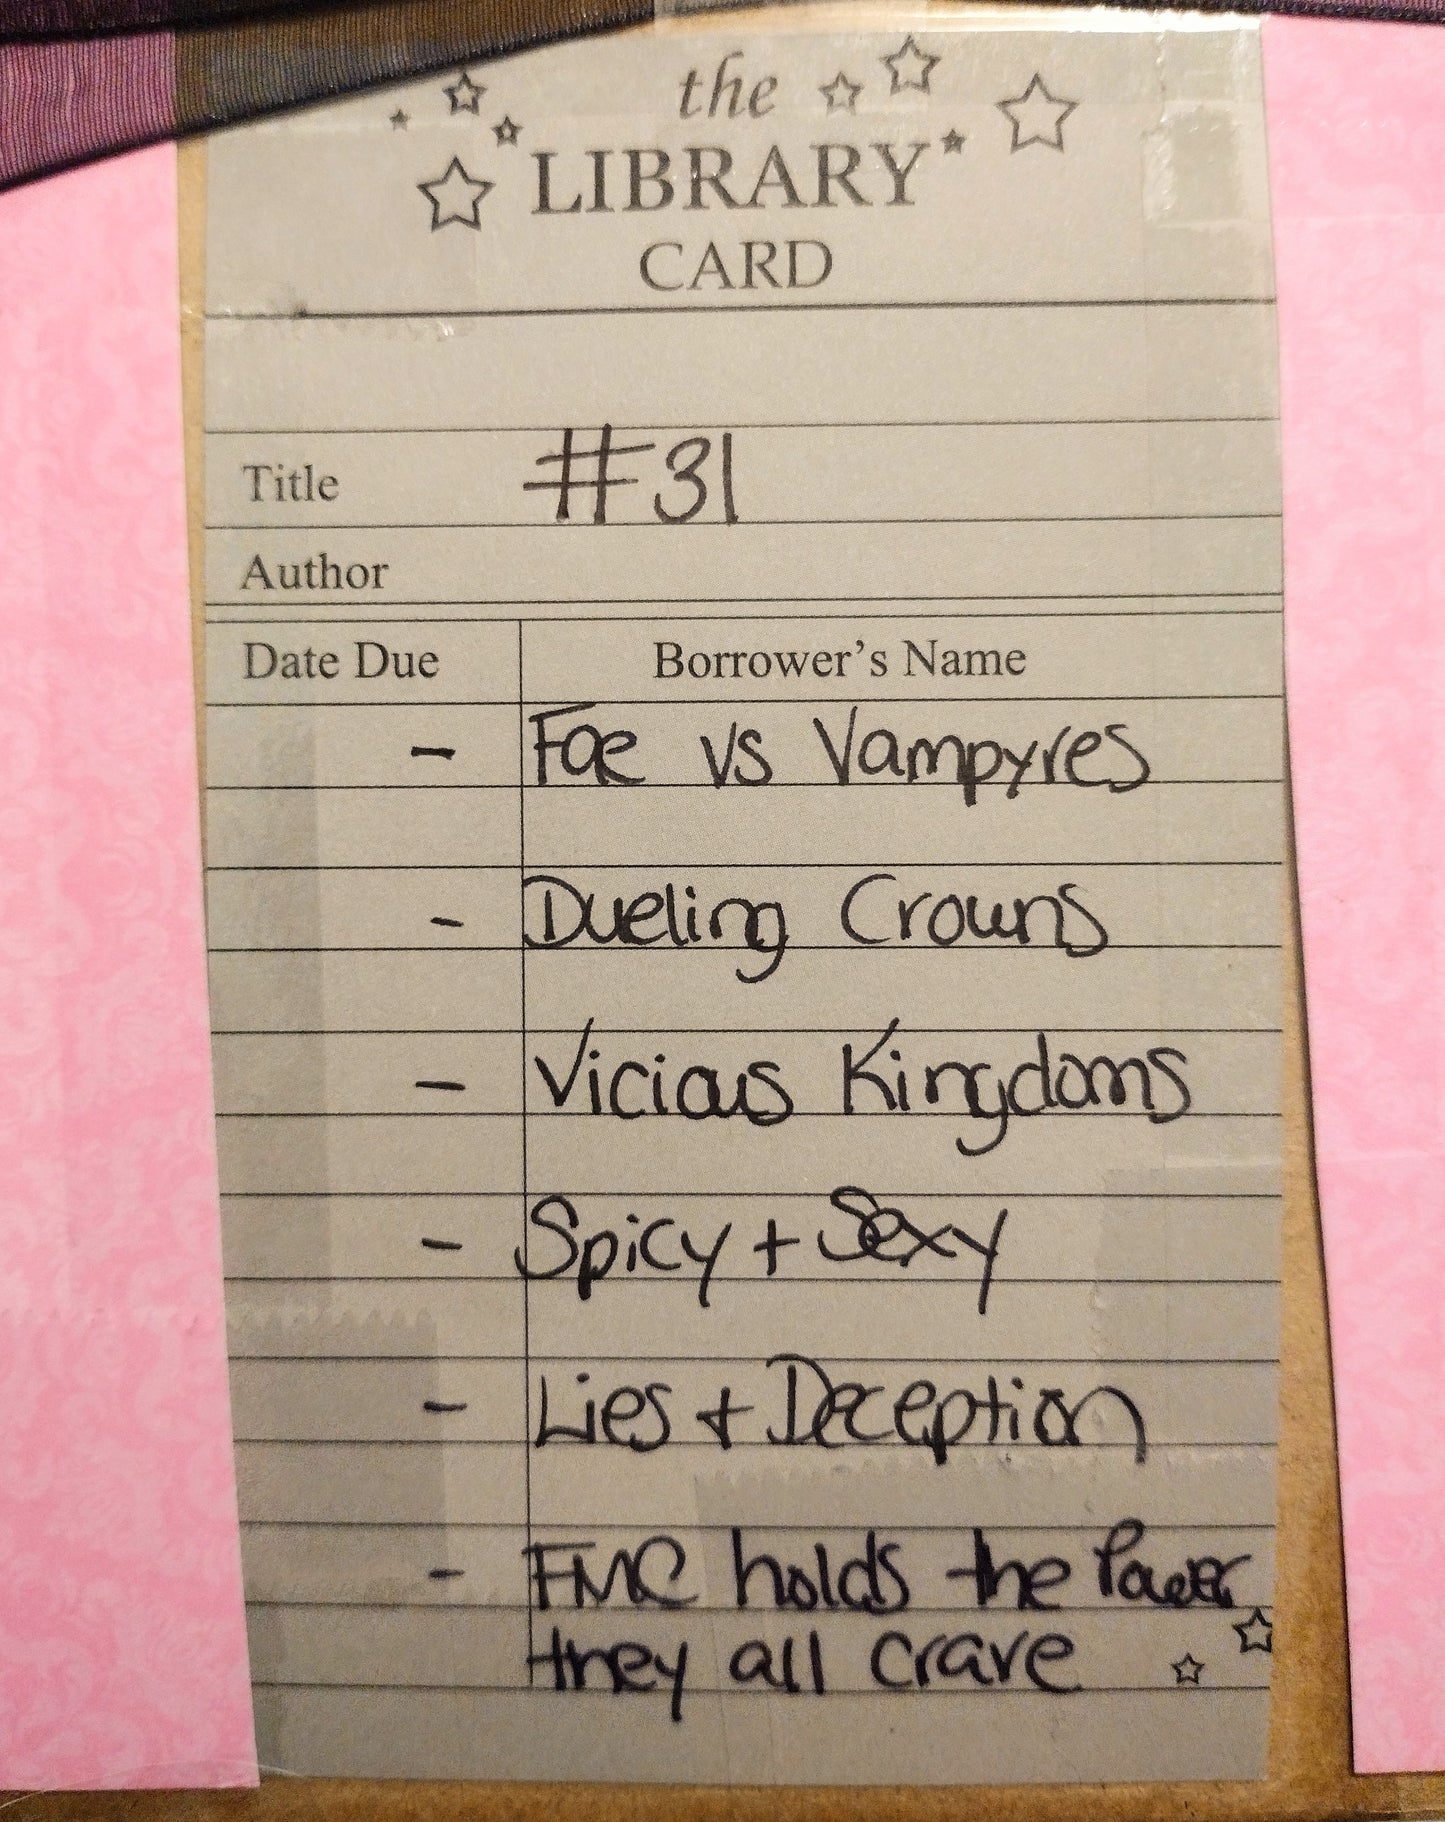 the
LIBRARY
CARD
Title #31
Author
Date Due Borrower's Name
- Fae vs Vampyres
- Dueling Crowns
- Vicious Kingdoms
- Spicy + Sexy
- Lies + Deception
- FMC holds the Power
they all crave